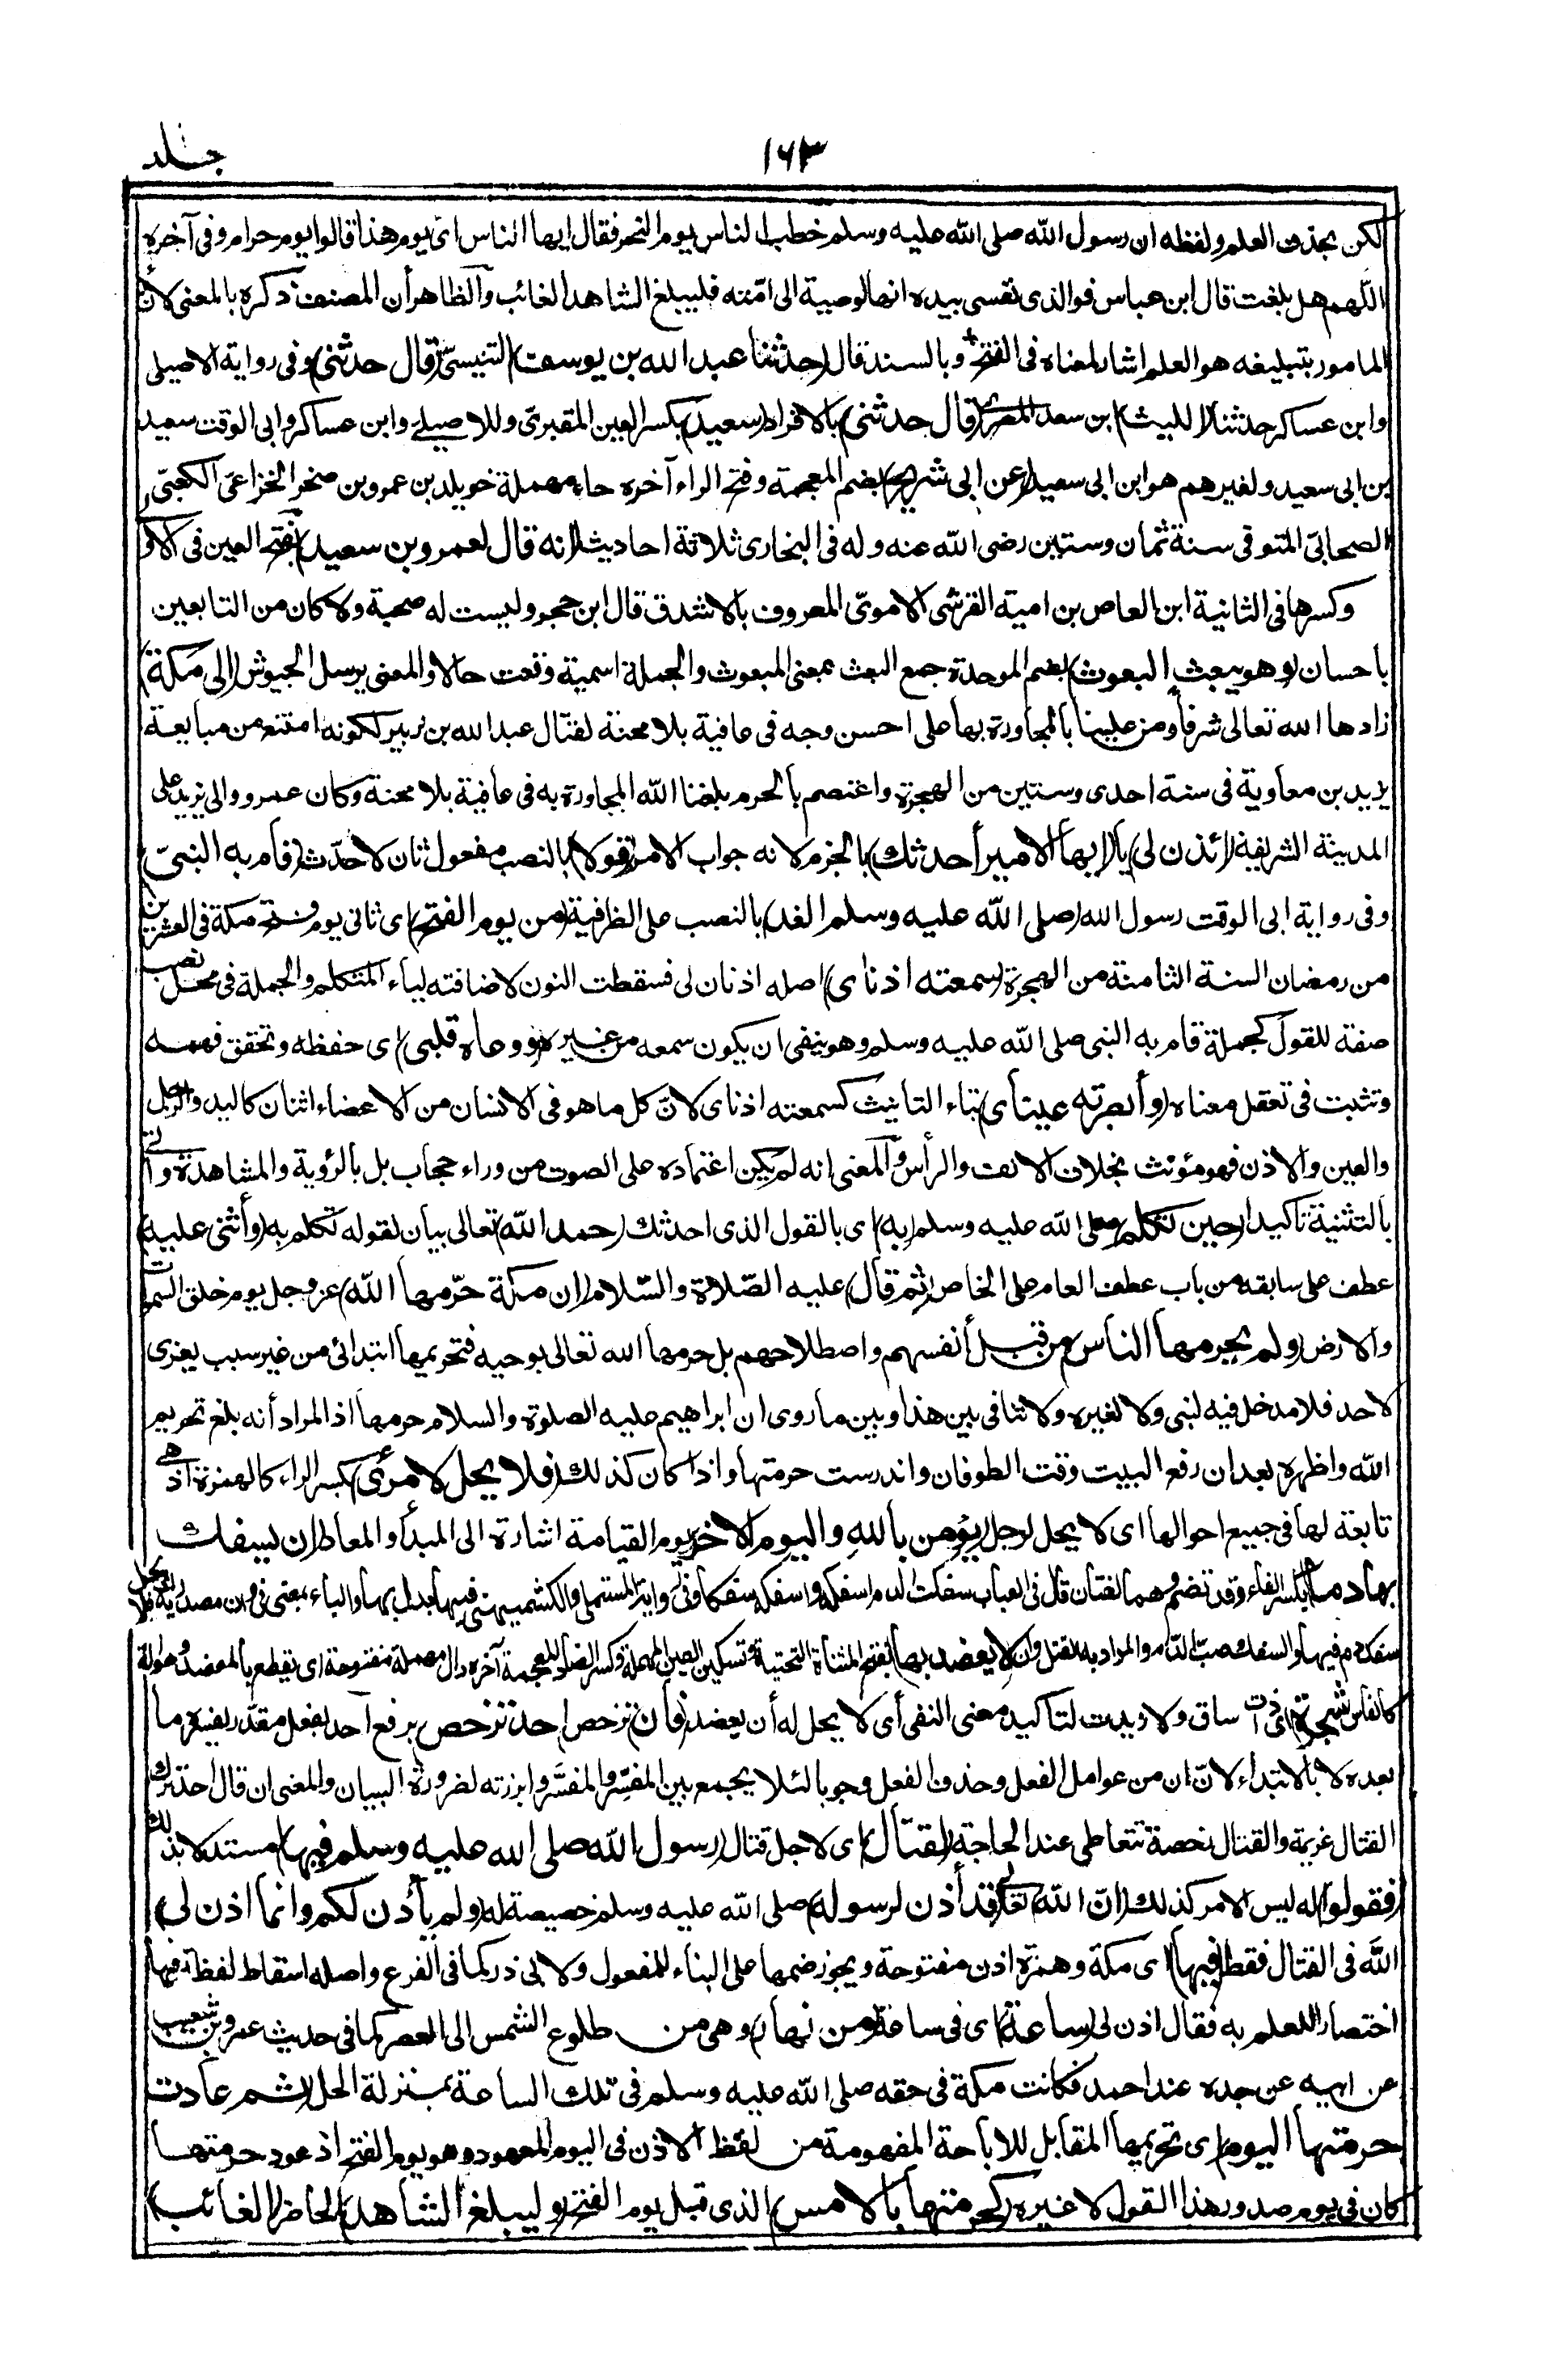 ١٦٣
جلد
لكن بحذف العلم ولفظه ان رسول الله صلى الله عليه وسلم خطب الناس يوم النحر فقال ايها الناس اى يوم هذا قالوا يوم حرام وفى آخره
اللهم هل بلغت قال ابن عباس فوالذى نفسى بيده انها لوصية الى امته فليبلغ الشاهد الغائب والظاهر أن المصنف ذكره بالمعنى لأن
المامور بتبليغه هو العلم اشار لمعناه فى الفتح وبالسند قال (حدثنا عبد الله بن يوسف) التنيسىّ (قال حدثنى) وفى رواية الاصيلى
وابن عساكر حدثنا (الليث) ابن سعد المصرى (قال حدثنى) بالافراد (سعيد) بكسر العين المقبرىّ وللاصيلى وابن عساكر وابى الوقت سعيد
بن ابى سعيد ولغيرهم هو ابن ابى سعيد (عن ابى شريح) بضم المعجمة وفتح الراء آخره حاء مهملة خويلد بن عمرو بن صخر الخزاعىّ الكعبىّ
الصحابىّ المتوفى سنة ثمان وستين رضى الله عنه وله فى البخارى ثلاثة احاديث (انه قال لعمرو بن سعيد) بفتح العين فى الاو
وكسرها فى الثانية ابن العاص بن امية القرشى الاموىّ المعروف بالاشدق قال ابن حجر وليست له صحبة ولا كان من التابعين
باحسان (وهو يبعث البعوث) بضم الموحدة جمع البعث بمعنى المبعوث والجملة اسمية وقعت حالا والمعنى يرسل الجيوش (الى مكة)
زادها الله تعالى شرفا ومن علينا بالمجاورة بها على احسن وجه فى عافية بلا محنة لقتال عبد الله بن زبير لكونه امتنع من مبايعة
يزيد بن معاوية فى سنة احدى وستين من الهجرة واعتصم بالحرم بلغنا الله المجاورة به فى عافية بلا محنة وكان عمرو والى يزيد على
المدينة الشريفة (ائذن لى) يا (ايها الامير أحدثك) بالجزم لانه جواب الامر (قولا) بالنصب مفعول ثان لاحدّث (قام به النبىّ)
وفى رواية ابى الوقت رسول الله (صلى الله عليه وسلم الغد) بالنصب على الظرفية (من يوم الفتح) اى ثانى يوم فتح مكة فى العشرين
من رمضان السنة الثامنة من الهجرة (سمعته اذناى) اصله اذنان لى فسقطت النون لاضافته لياء المتكلم والجملة فى محل نصب
صفة للقول كجملة قام به النبى صلى الله عليه وسلم وهو ينفى ان يكون سمعه من غيره (ووعاه قلبى) اى حفظه وتحقق فهمه
وتثبت فى تعقل معناه (وأبصرته عيناى) بتاء التانيث كسمعته اذناى لانّ كل ما هو فى الانسان من الاعضاء اثنان كاليد والرجل
والعين والاذن فهو مؤنث بخلاف الانف والرأس والمعنى انه لم يكن اعتماده على الصوت من وراء حجاب بل بالرؤية والمشاهدة واتى
بالتثنية تاكيدا (حين تكلم) صلى الله عليه وسلم (به) اى بالقول الذى احدثك (حمد الله) تعالى بيان لقوله تكلم به (وأثنى عليه)
عطف على سابقه من باب عطف العام على الخاص (ثم قال) عليه الصّلاة والسّلام (ان مكة حرّمها الله) عز وجل يوم خلق السموات
والارض (ولم يحرمها الناس) من قبل أنفسهم واصطلاحهم بل حرمها الله تعالى بوحيه فتحريمها ابتدائى من غير سبب يعزى
لاحد فلا مدخل فيه لنبى ولا لغيره ولا تنافى بين هذا وبين ما روى ان ابراهيم عليه الصلوة والسلام حرمها اذ المراد أنه بلغ تحريم
الله واظهره بعد ان رفع البيت وقت الطوفان واندرست حرمتها واذا كان كذلك (فلا يحل لامرئ) بكسر الراء كالهمزة اذ هى
تابعة لها فى جميع احوالها اى لا يحل لرجل (يؤمن بالله واليوم الاخر) يوم القيامة اشارة الى المبدأ والمعاد (ان يسفك
بها دما) بكسر الفاء وقد تضم وهما لغتان قال فى العباب سفكت الدم اسفكه واسفكه سفكا وفى رواية المستملى والكشميهنى فيها بدل بها والباء بمعنى فى وان مصدرية اى فلا يحل
سفك دم فيها والسفك صبّ الدّم والمراد به القتل (و) ان (لا يعضد بها) بفتح المثناة التحتية وتسكين العين المهملة وكسر الضاد المعجمة آخره دال مهملة مفتوحة اى يقطع بالمعضد وهو الة
كالفاس (شجرة) اى ذات ساق ولا زيدت لتاكيد معنى النفى أى لا يحل له أن يعضد (فان) ترخص (احد ترخص) برفع احد بفعل مقدّر يفسره ما
بعده لا بالابتداء لانّ ان من عوامل الفعل وحذف الفعل وجوبا لئلا يجمع بين المفسِّر والمفسَّر وابرزته لضرورة البيان والمعنى ان قال احد ترك
القتال عزيمة والقتال رخصة تتعاطى عند الحاجة (لقتال) اى لاجل قتال (رسول الله صلى الله عليه وسلم فيها) مستدلا بذلك
(فقولوا) له ليس الامر كذلك (انّ الله) تعالى (قد أذن لرسوله) صلى الله عليه وسلم خصيصة له (ولم يأذن لكم وانما اذن لى)
الله فى القتال فقط (فيها) اى مكة وهمزة اذن مفتوحة ويجوز ضمها على البناء للمفعول ولابى ذر كما فى الفرع واصله اسقاط لفظة فيها
اختصارا للعلم به فقال اذن لى (ساعة) اى فى ساعة (من نهار) وهى من طلوع الشمس الى العصر كما فى حديث عمرو بن شعيب
عن ابيه عن جده عند احمد فكانت مكة فى حقه صلى الله عليه وسلم فى تلك الساعة بمنزلة الحل (ثم عادت
حرمتها اليوم) اى تحريمها المقابل للاباحة المفهومة من لفظ الاذن فى اليوم المعهود وهو يوم الفتح اذ عود حرمتها
كان فى يوم صدور هذا القول لا غيره (كحرمتها بالامس) الذى قبل يوم الفتح (وليبلغ الشاهد) الحاضر (الغائب)